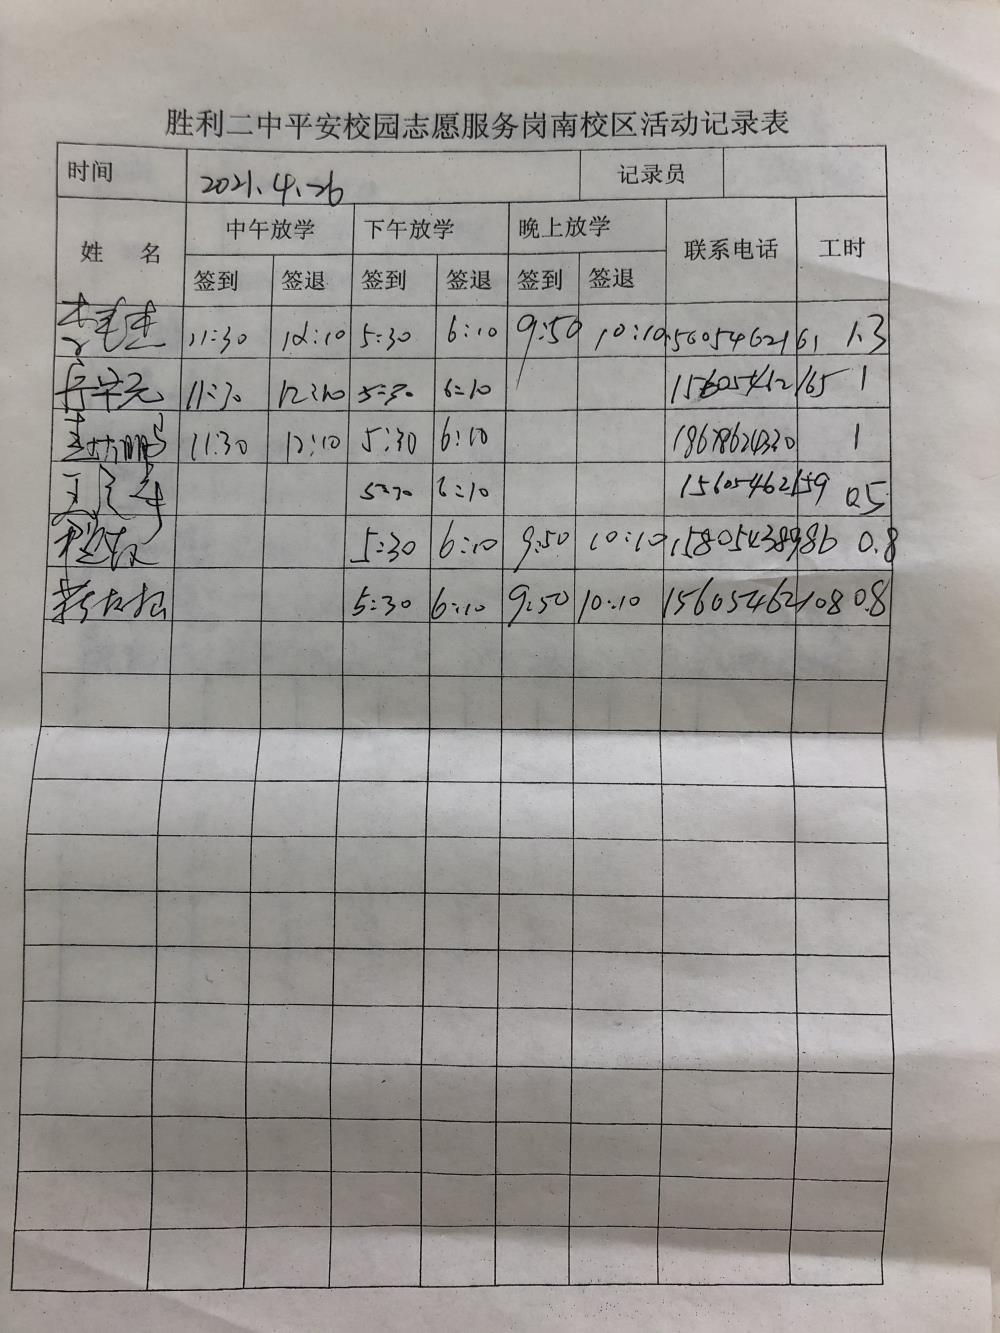 胜利二中平安校园志愿服务岗南校区活动记录表
时间 2021.4.26 记录员
姓 名 中午放学 下午放学 晚上放学 联系电话 工时
签到 签退 签到 签退 签到 签退
11:30 12:10 5:30 6:10 9:50 10:10 15605462161 1.3
11:30 12:10 5:30 6:10 15605462165 1
11:30 12:10 5:30 6:10 1
5:30 6:10 15605462159 0.5
5:30 6:10 9:50 10:10 15805438986 0.8
5:30 6:10 9:50 10:10 15605462108 0.8